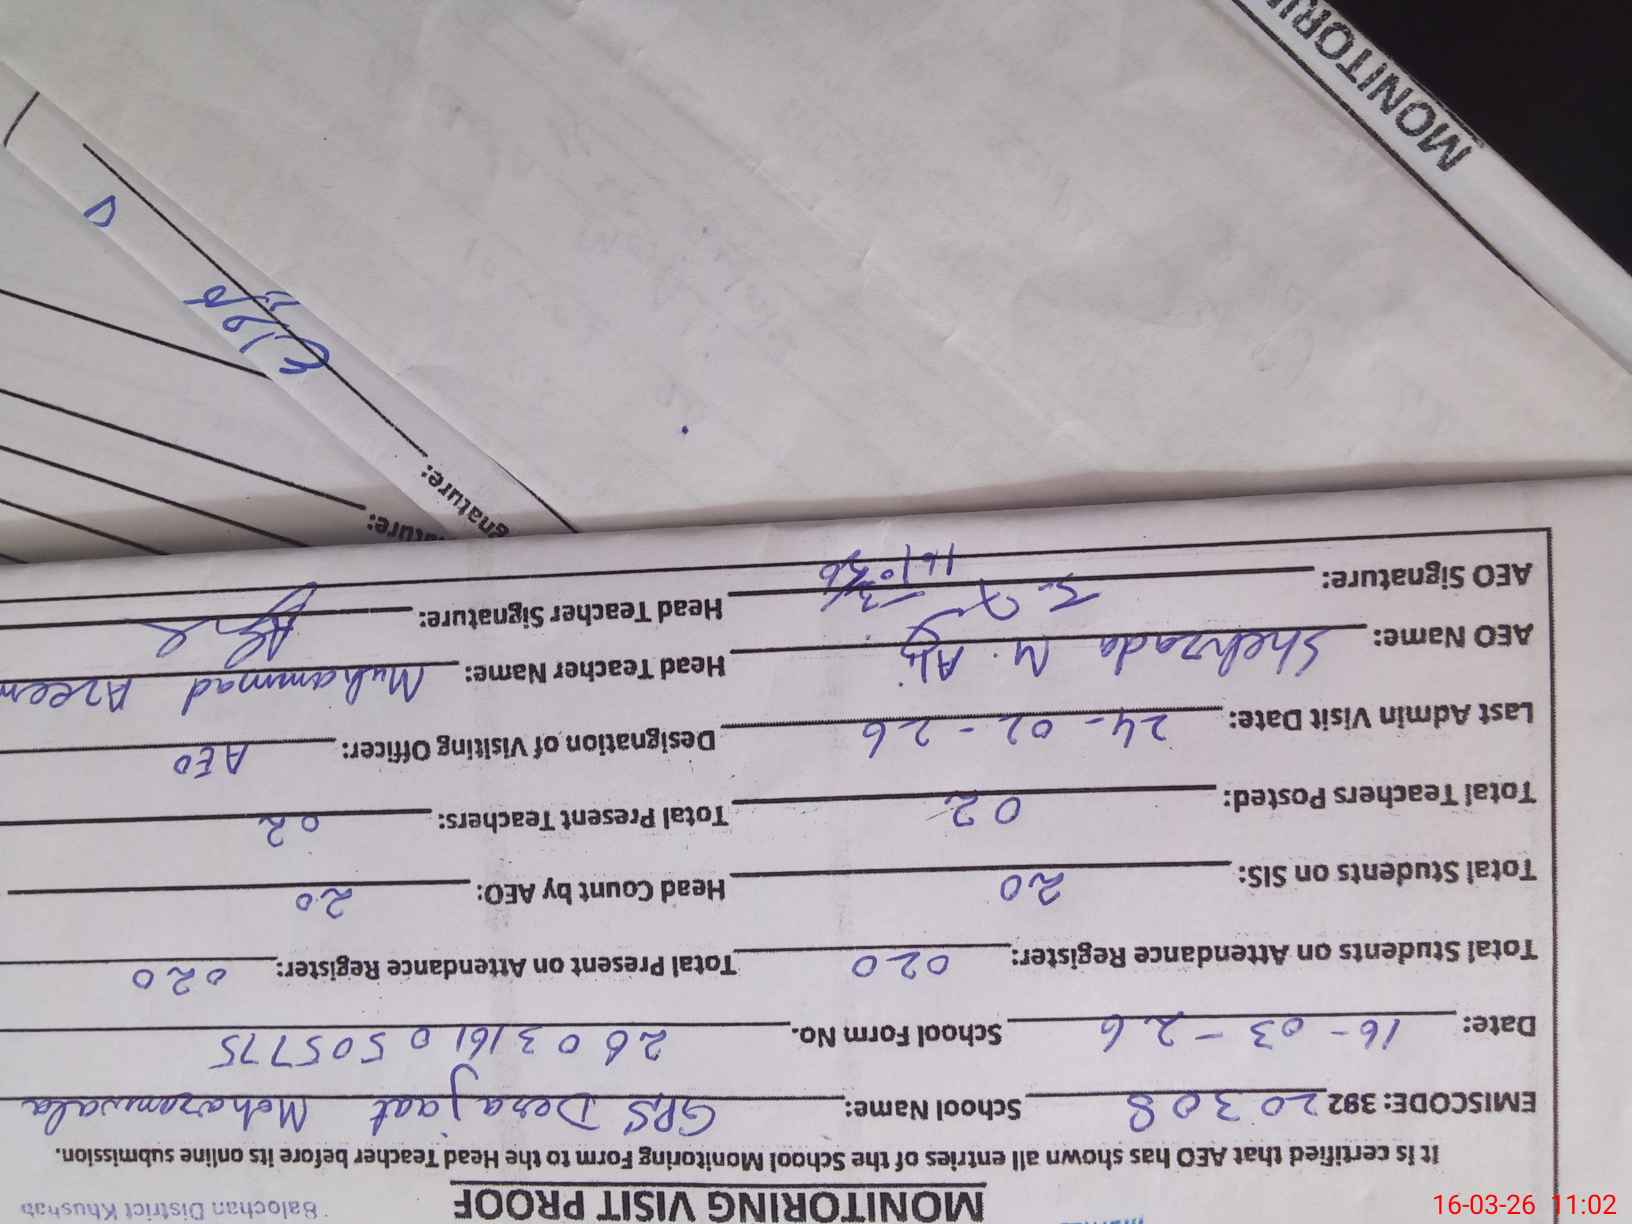 Balochan District Khushab
MONITORING VISIT PROOF
It is certified that AEO has shown all entries of the School Monitoring Form to the Head Teacher before its online submission.
EMISCODE: 392 20308 School Name: GPS Derajaat Moharamwala
Date: 16-03-26 School Form No. 26031610505775
Total Students on Attendance Register: 020 Total Present on Attendance Register: 020
Total Students on SIS: 20 Head Count by AEO: 20
Total Teachers Posted: 02 Total Present Teachers: 02
Last Admin Visit Date: 24-02-26 Designation of Visiting Officer: AEO
AEO Name: Shehzada M. Ali Head Teacher Name: Muhammad Azeem
AEO Signature: Head Teacher Signature:
ature:
gnature:
MONITORI
16-03-26 11:02